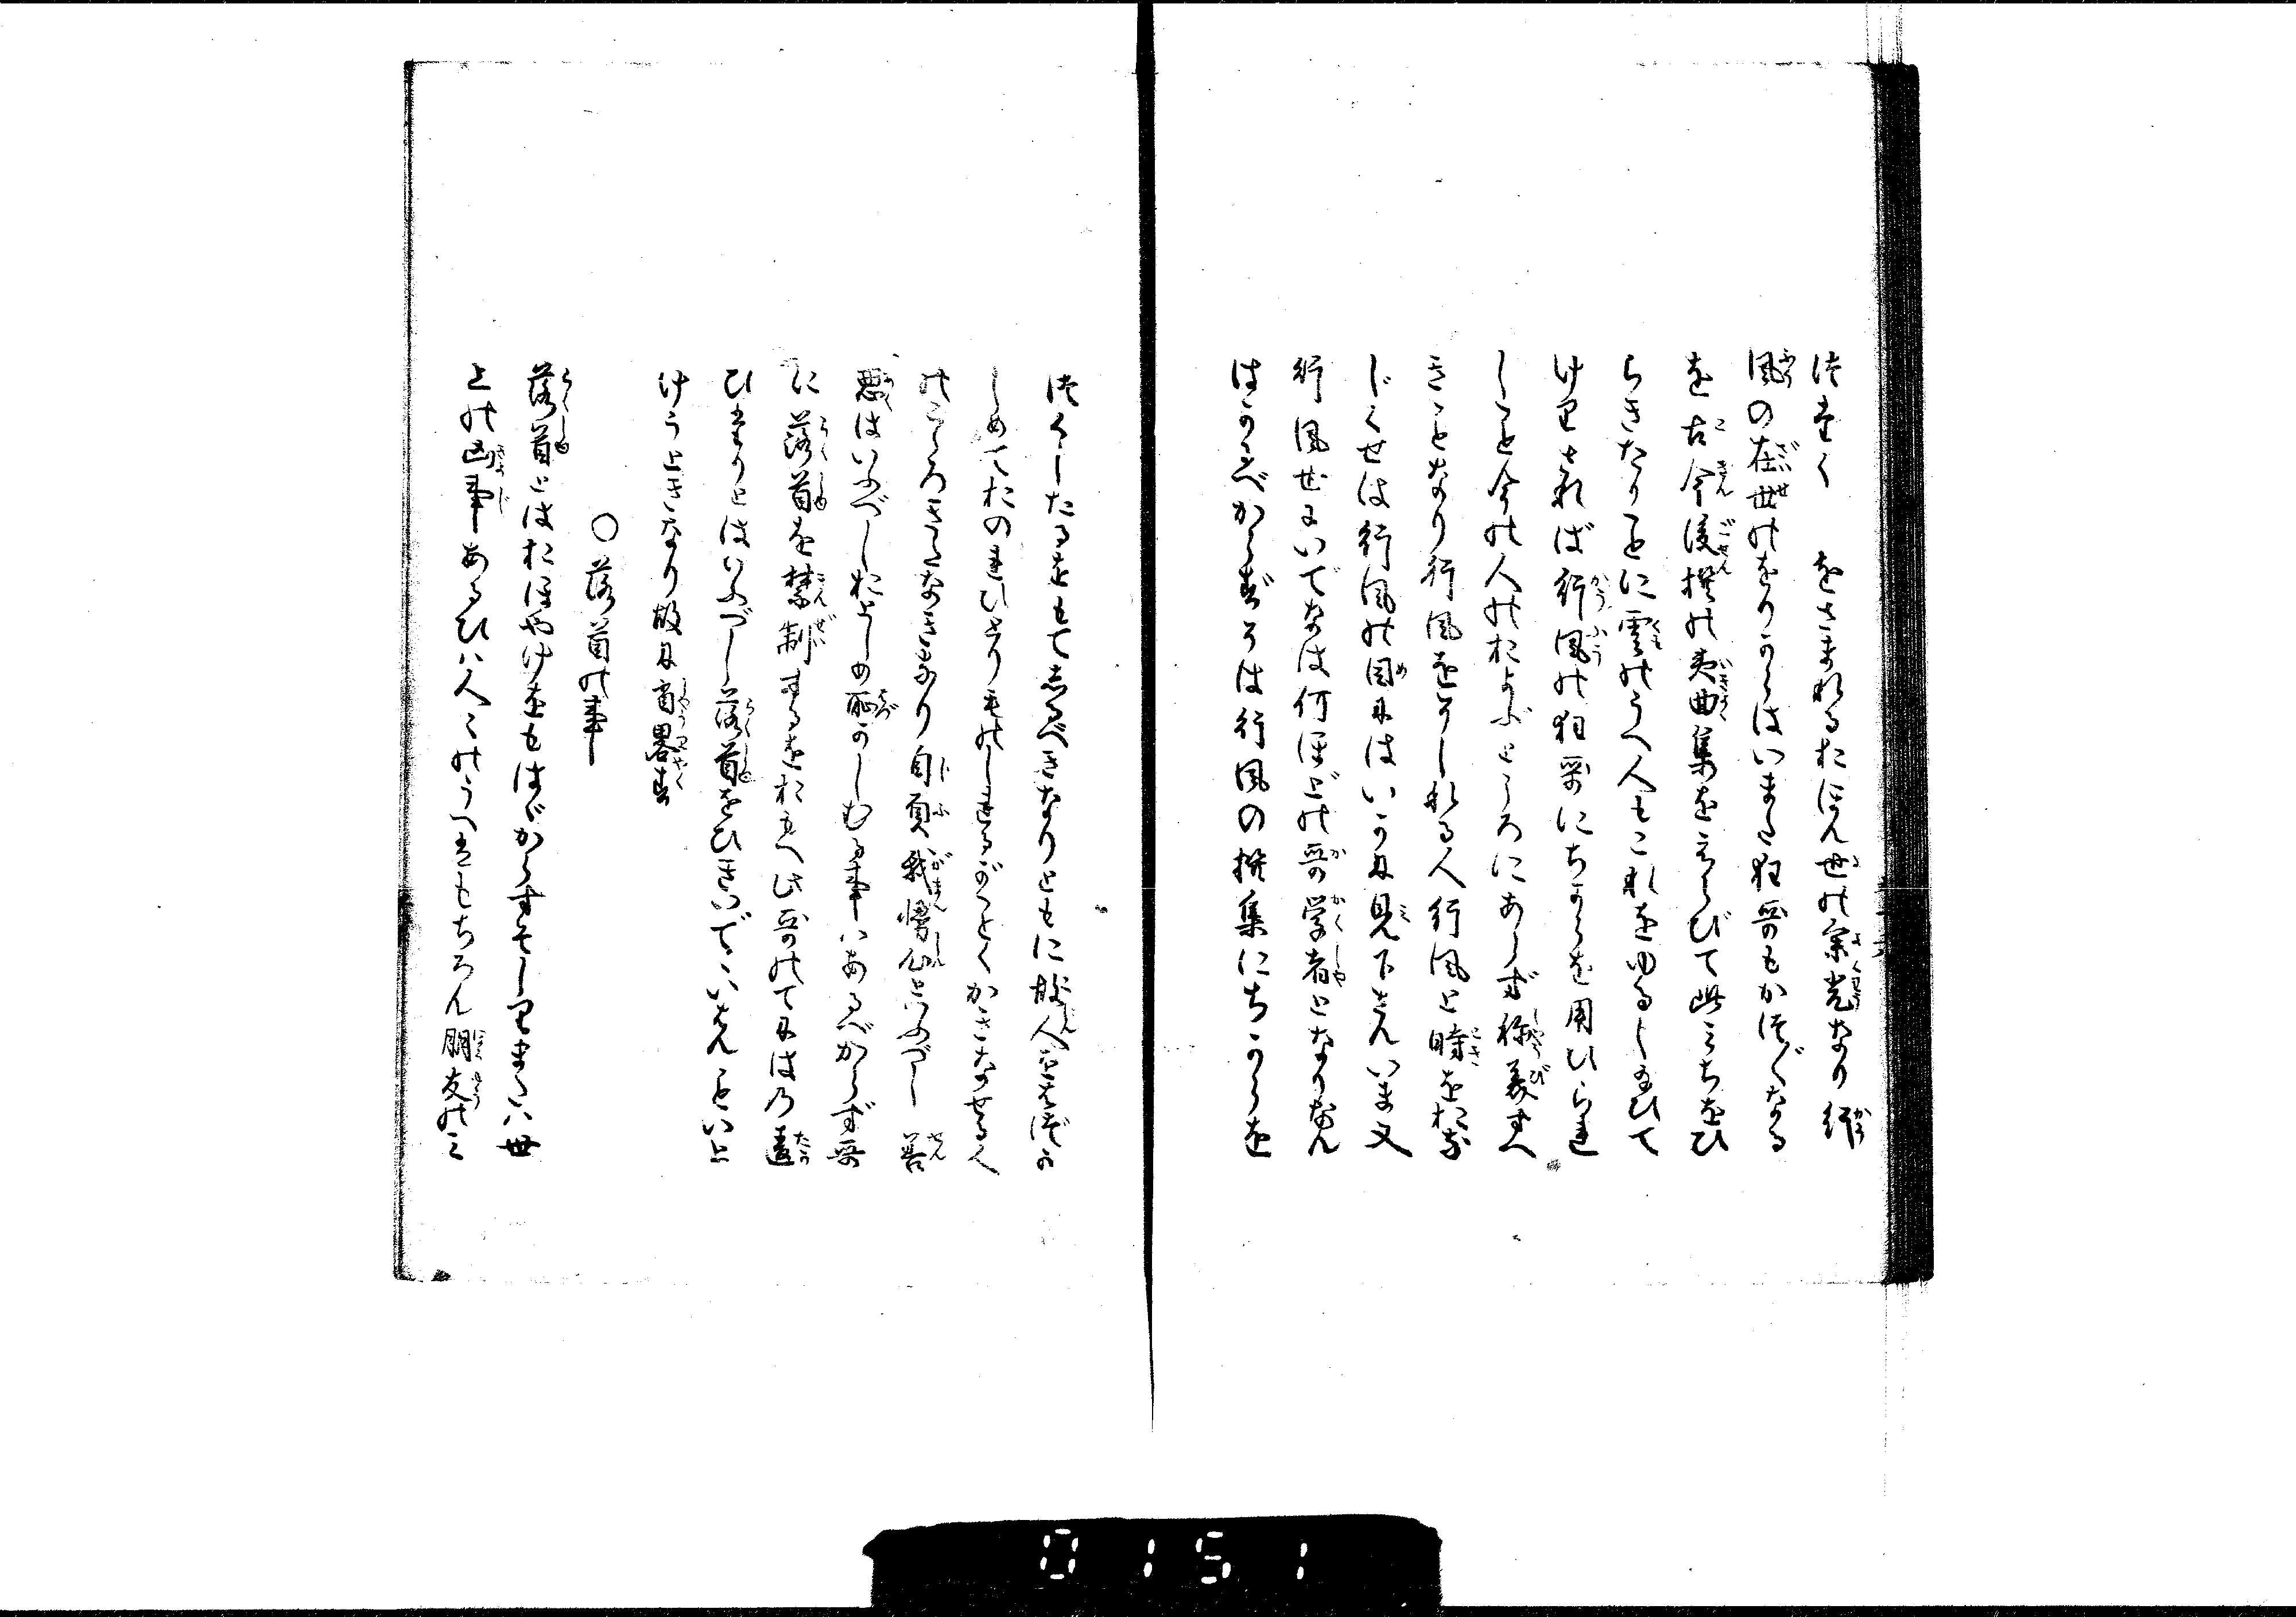 はたく をさまれるにほん世の栄光なり行
風の在世のをりからはいまだ狂哥もかたくなる
を古今後撰の夷曲集をえらびて此みちをひ
らきたりことに雲のうへ人もこれをゆるし給ひて
けりされば行風の狂哥にちからを用ひられ
しこと今の人のおよぶところにあらず称美すべ
きことなり行風をそしれる人行風と時をおな
じくせは行風の目にはいかに見下さんいま又
行風世にいでなは何ほどの哥の学者となりなん
はかるべからずそは行風の撰集にちからを
つくしたるをもて志るべきなりともに故人をはづか
しめておのれひとりものしれるがごとくかきなせる人
のこころきたなきなり自負我慢心といふべし善
悪はいふべしおとしめ恥かしむる事はあるべからず哥
に落首を禁制するをおもへば此哥のてには乃違
ひなりとはいふべし落首をひきいでゝいはんことはい
けうときなり故に商畧す
○落首の事
落首とはおほやけをもはゞからすそしりまたは世
上の凶事あるひは人々のうへはもちろん朋友のミ
0151